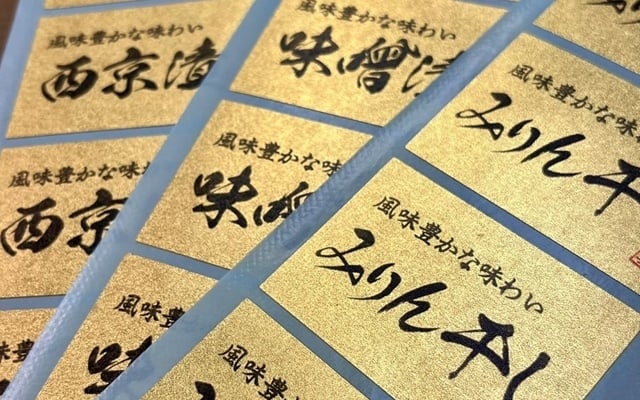 風味豊かな味わい
西京漬
風味豊かな味わ
西京
風味豊かな味わい
味噌漬
風味豊かな味
味噌
風味豊か
味
風味豊かな味
みりん干
風味豊かな味わい
みりん干し
風味豊かな